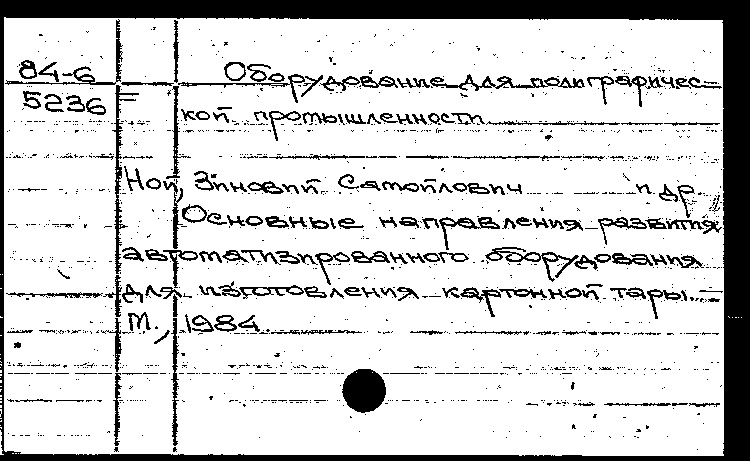 84-6 Оборудование для полиграфичес-
5236 = кой промышленности
Ной, Зиновий Самойлович и др.
Основные направления развития
автоматизированного оборудования
для изготовления картонной тары. —
М., 1984